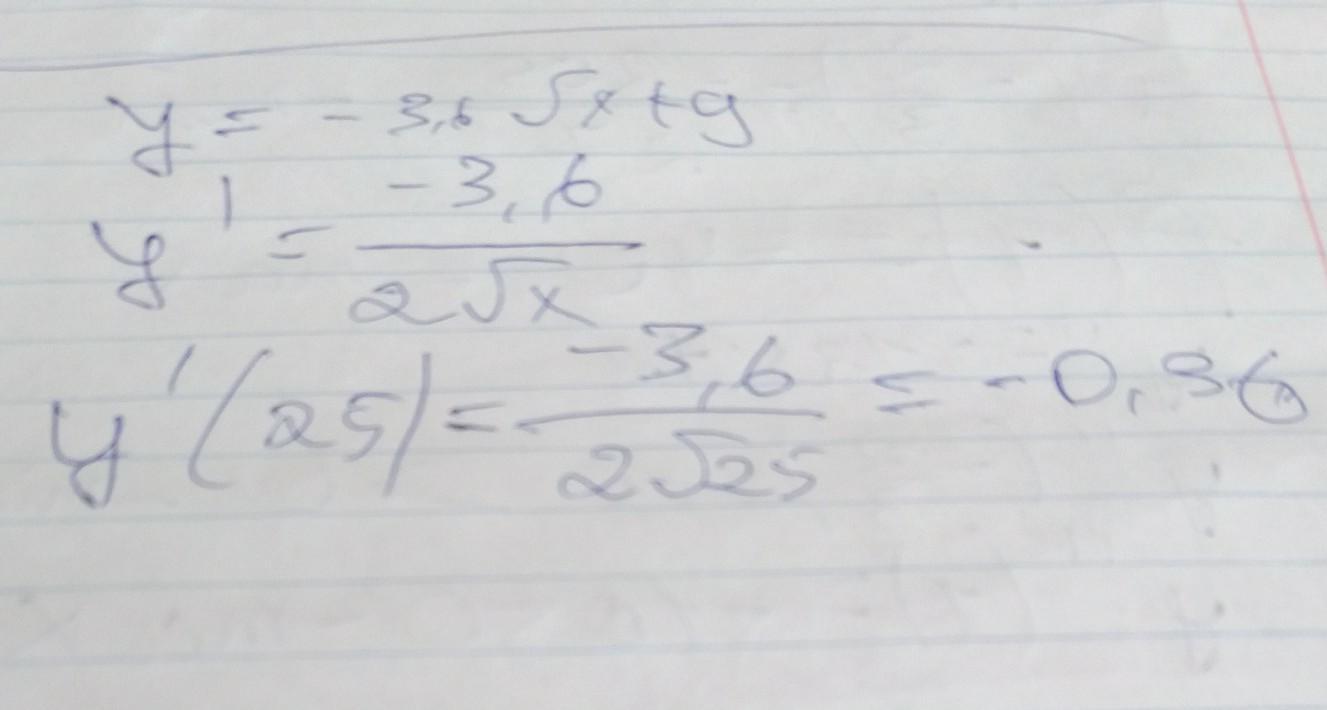 y = - 3,6 √x + 9
y' = -3,6 / 2√x
y'(25) = -3,6 / 2√25 = -0,36